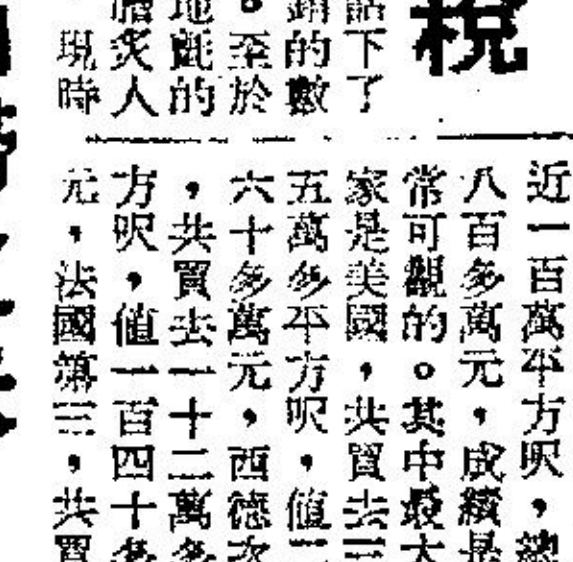 稅
話下了
銷的數
。至於
地氈的
膾炙人
現時
近一百萬平方呎，總
八百多萬元，成績是
常可觀的。其中最大
家是美國，共買去三
五萬多平方呎，值二
六十多萬元，西德次
，共買去一十二萬多
方呎，值一百四十多
元，法國第三，共買